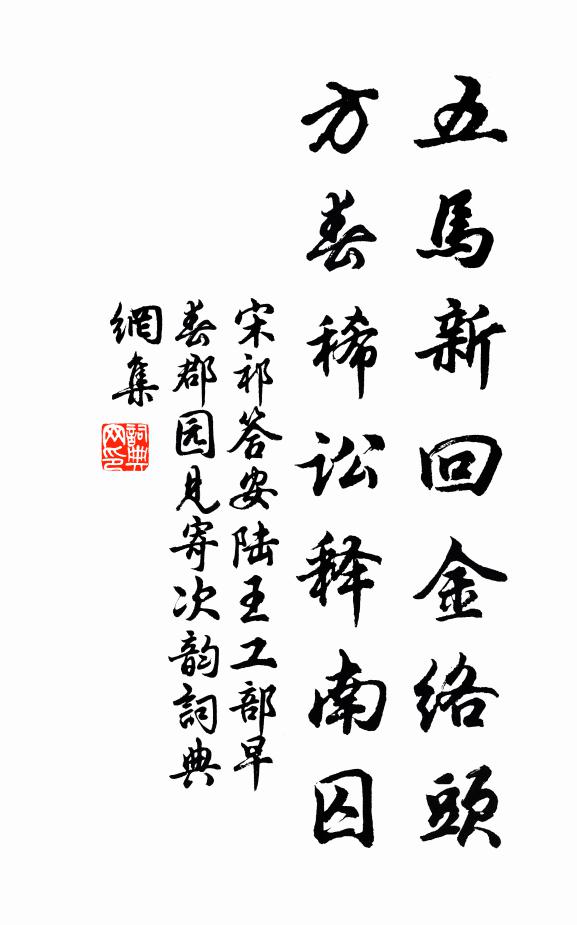 五馬新回金絡頭
方春稀訟释南囚
宋祁答安陆王工部早
春郡园見寄次韵詞典
網集
詞典
网印